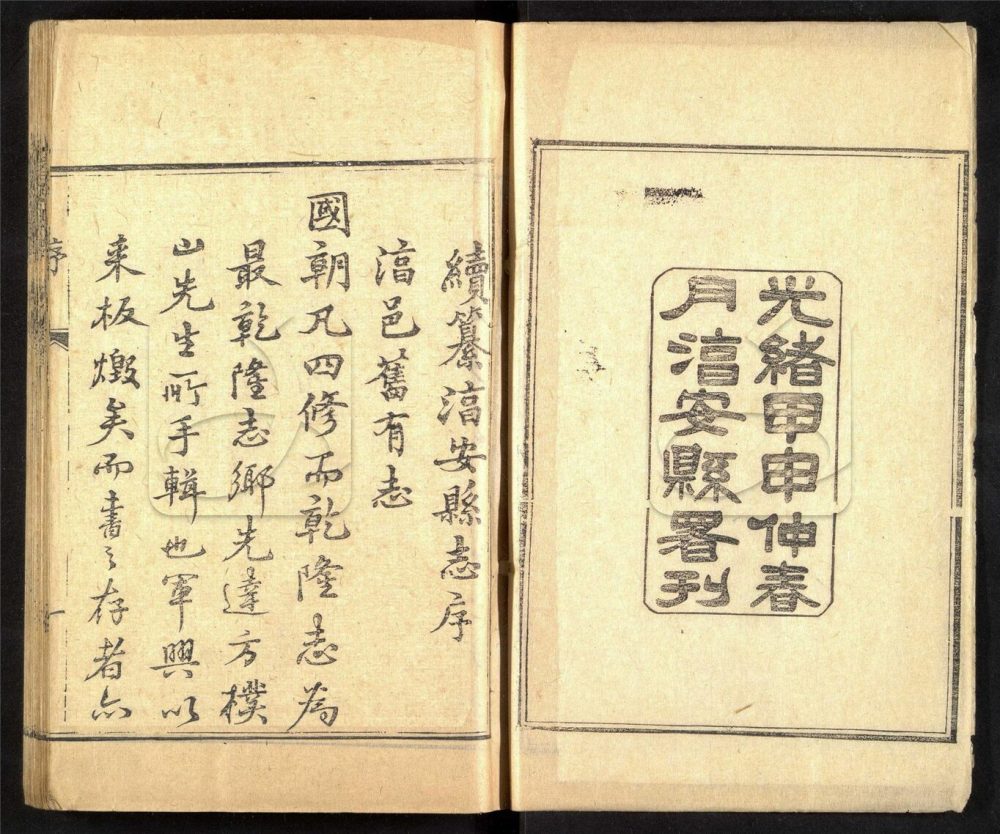 光緒甲申仲春
月淳安縣署刊
續纂淳安縣志序
淳邑舊有志
國朝凡四修而乾隆志為
最乾隆志鄉先達方樸
山先生所手輯也軍興以
来板燬矣而書之存者亦
序
一